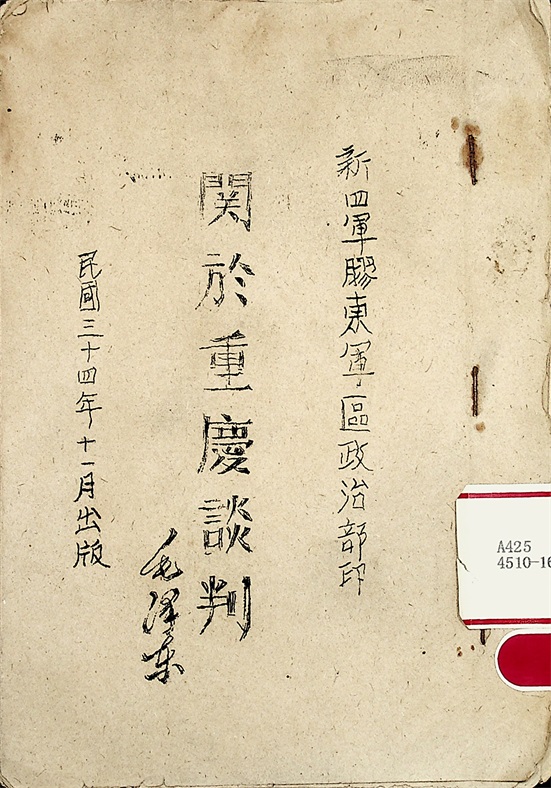 新四軍膠東軍區政治部印
関於重慶談判
毛泽东
民國三十四年十一月出版
A425
4510-16